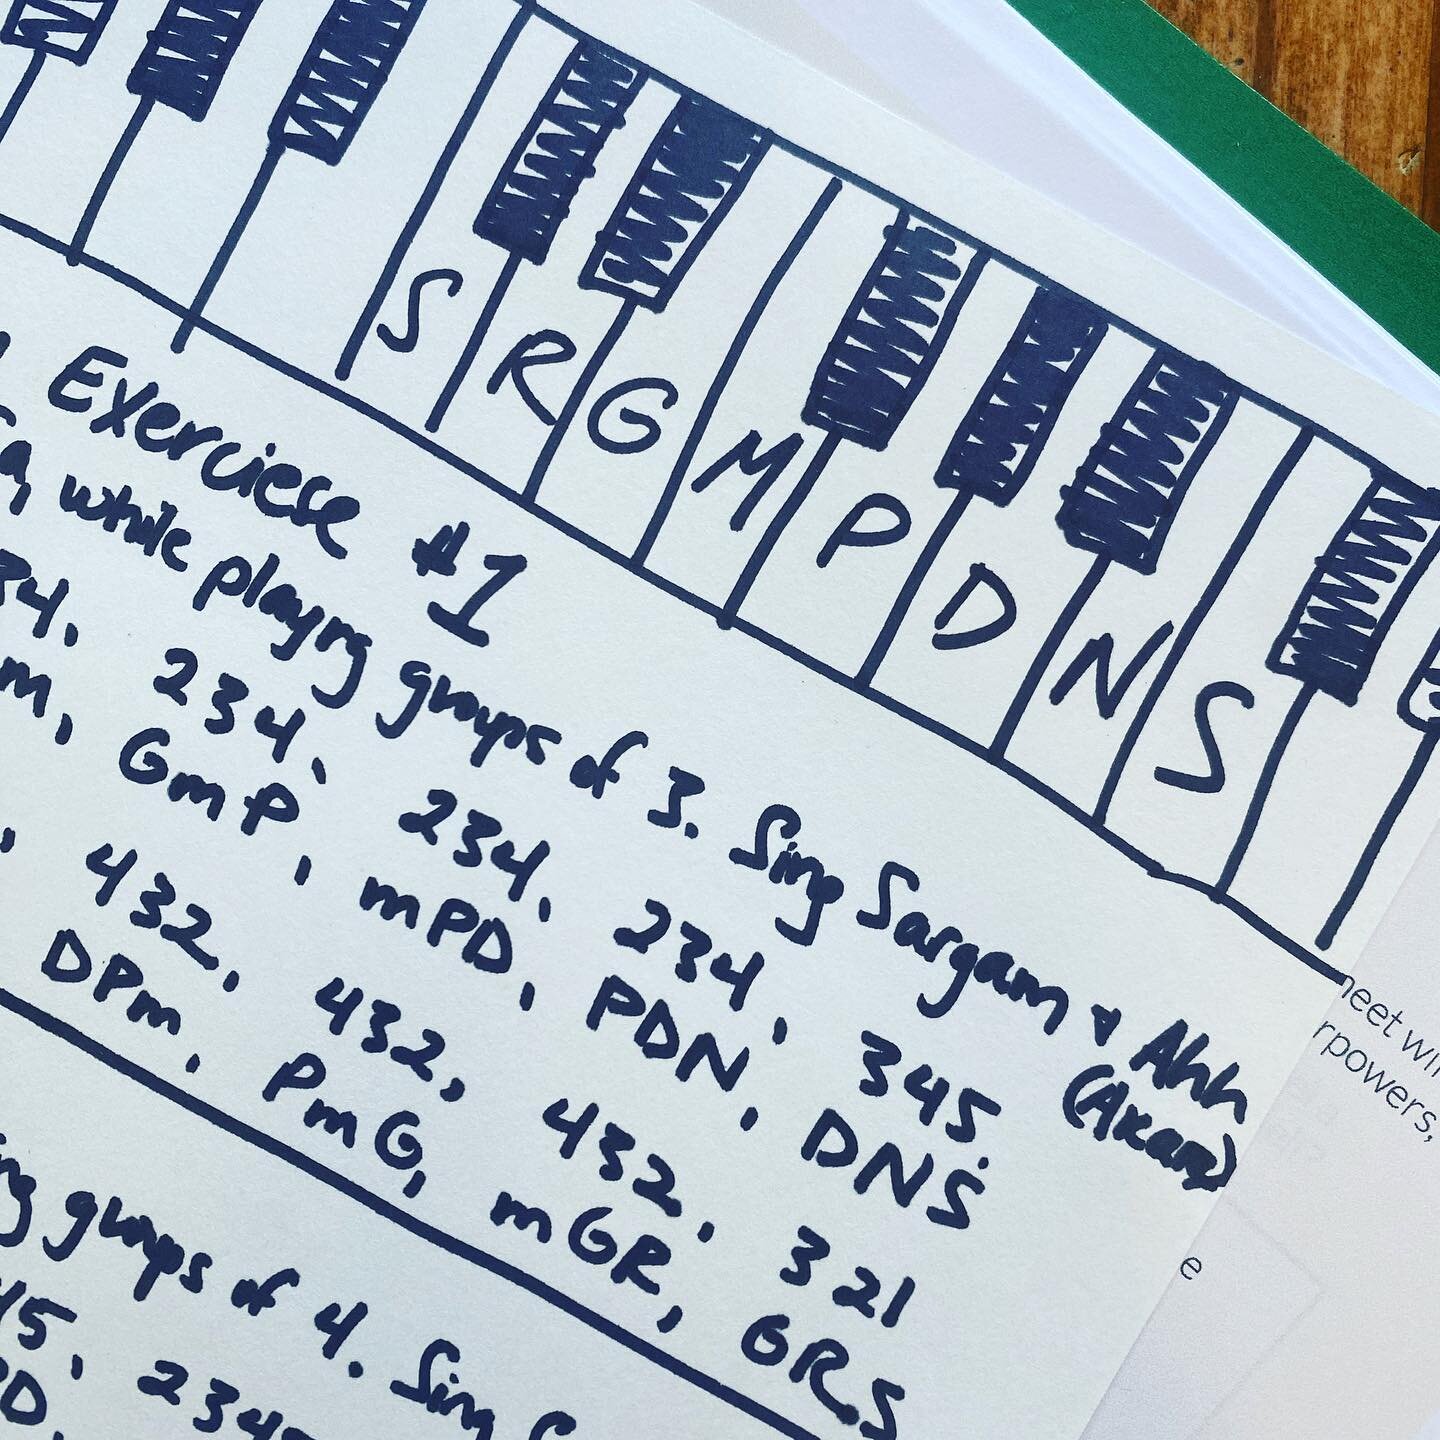 S R G M P D N S
Exerciese #1
while playing groups of 3. Sing Sargam + Ahh
(Akar)
34, 234, 234, 234, 345.
m, GmP, mPD, PDN, DNṠ
, 432, 432, 432, 321
DPm, PmG, mGR, GRS
groups of 4. Sing S
45, 2345
PD,
neet wi
rpowers,
e